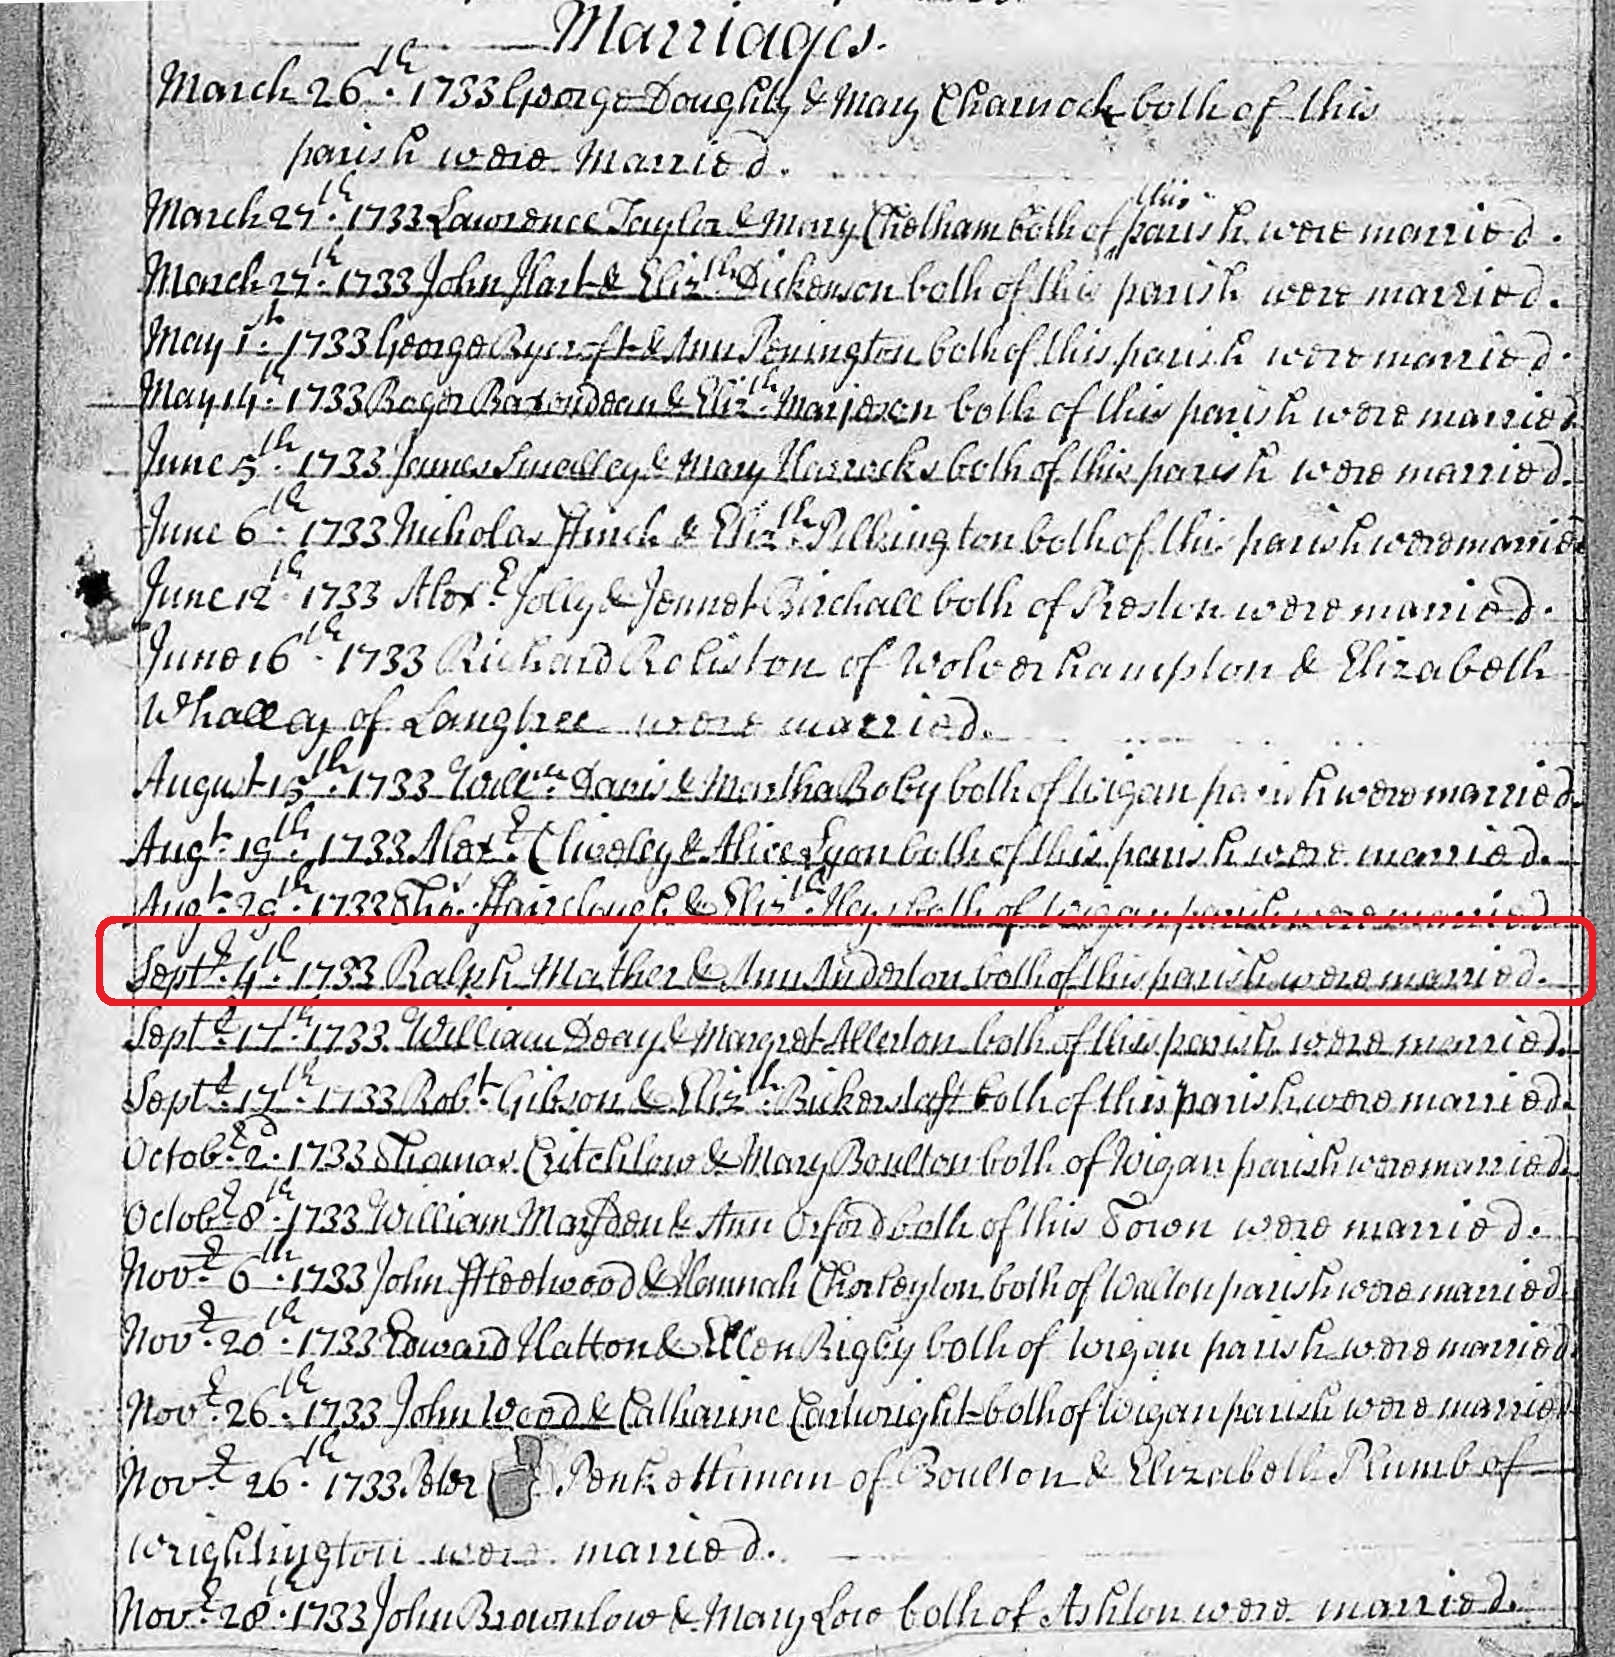 Marriages.
March 26th. 1733 George Doughty & Mary Charnock both of this
parish were Married.
March 27th. 1733 Lawrence Taylor & Mary Chetham both of this parish were married.
March 27th. 1733 John Hart & Elizth. Dickenson both of this parish were married.
May 1st. 1733 George Rycroft & Ann Penington both of this parish were married.
May 14th. 1733 Roger Baxondean & Elizth. Marjeson both of this parish were married
June 5th. 1733 James Smalley & Mary Harrocks both of this parish were married.
June 6th. 1733 Nicholas Finch & Elizth. Pilkington both of this parish were married
June 12th. 1733 Alexr. Jolly & Jennet Birchall both of Preston were married.
June 16th. 1733 Richard Roliston of Wolverhampton & Elizabeth
Whalley of Langtree were married.
August 15th. 1733 Willm. Davis & Martha Boby both of Wigan parish were married.
Augt. 19th. 1733 Alexr. Cliveley & Alice Lyon both of this parish were married.
Augt. 29th. 1733 Tho. Fairclough & Elizth. Hey both of Wigan parish were married
Septr. 4th. 1733 Ralph Mather & Ann Anderton both of this parish were married.
Septr. 17th. 1733. William Deay & Margret Allerton both of this parish were married.
Septr. 17th. 1733 Robt. Gibson & Elizth. Bickerstaft both of this parish were married.
Octobr. 2d. 1733 Thomas Critchlow & Mary Boulton both of Wigan parish were married.
Octobr. 8th. 1733 William Marsden & Ann Orford both of this Town were married.
Novr. 6th. 1733 John Fleetwood & Hannah Chorleyton both of Walton parish were married.
Novr. 20th. 1733 Edward Hatton & Ellen Rigby both of Wigan parish were married
Novr. 26th. 1733 John Wood & Catharine Cartwright both of Wigan parish were married
Novr. 26th. 1733. Peter Penkethman of Boulton & Elizabeth Plumb of
Wrightington were married.
Novr. 28th. 1733 John Brownlow & Mary Low both of Ashton were married.